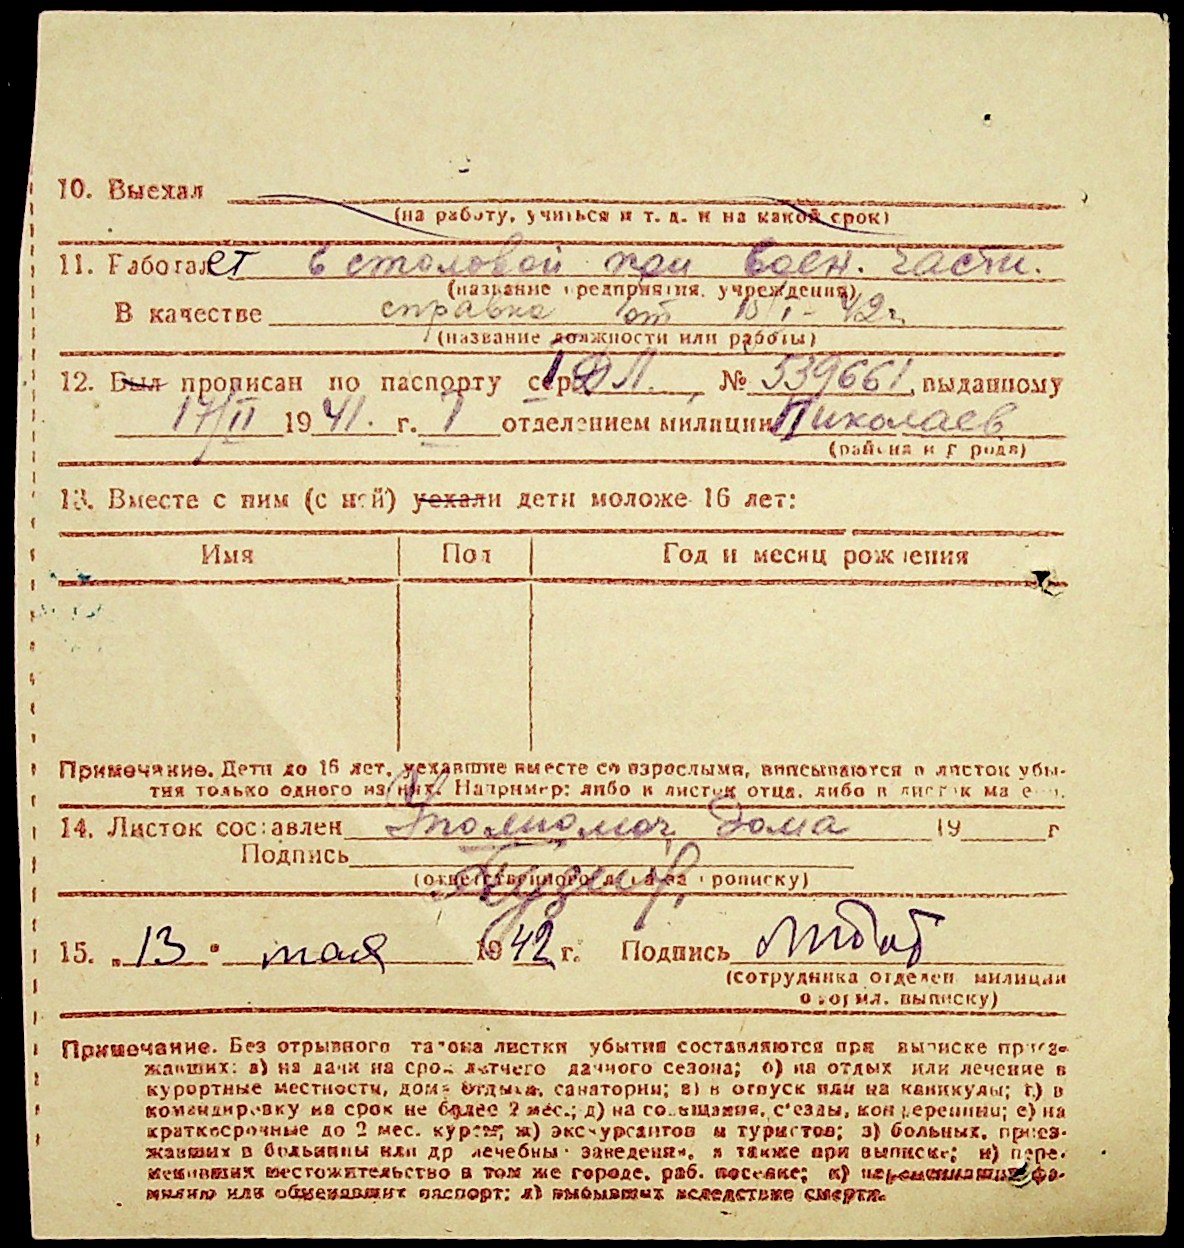 10. Выехал
(на работу, учиться и т. д. и на какой срок)
11. Работает в столовой при воен. части.
(название предприятия, учреждения)
В качестве справка от 15/I - 42 г.
(название должности или работы)
12. Был прописан по паспорту сер. № 539661, выданному
17/II 1941. г. I отделением милиции Николаев
(района и города)
13. Вместе с ним (с ней) уехали дети моложе 16 лет:
Имя Пол Год и месяц рождения
Примечание. Дети до 16 лет, уехавшие вместе со взрослыми, вписываются в листок убы-
тия только одного из них. Например: либо в листок отца, либо в листок матери.
14. Листок составлен Уполномоч. Дома 19 г
Подпись
(ответственного лица за прописку)
15. „13" мая 1942 г. Подпись
(сотрудника отделен. милиции
оформл. выписку)
Примечание. Без отрывного талона листки убытия составляются при выписке приез-
жавших: а) на дачи на срок летнего дачного сезона; б) на отдых или лечение в
курортные местности, дома отдыха, санатории; в) в отпуск или на каникулы; г) в
командировку на срок не более 2 мес.; д) на совещания, с'езды, конференции; е) на
краткосрочные до 2 мес. курсы; ж) экскурсантов и туристов; з) больных, приез-
жавших в больницы или др лечебные заведения, а также при выписке; и) пере-
менивших местожительство в том же городе, раб. поселке; к) переменивших фа-
милию или обменявших паспорт; л) выбывших вследствие смерти.